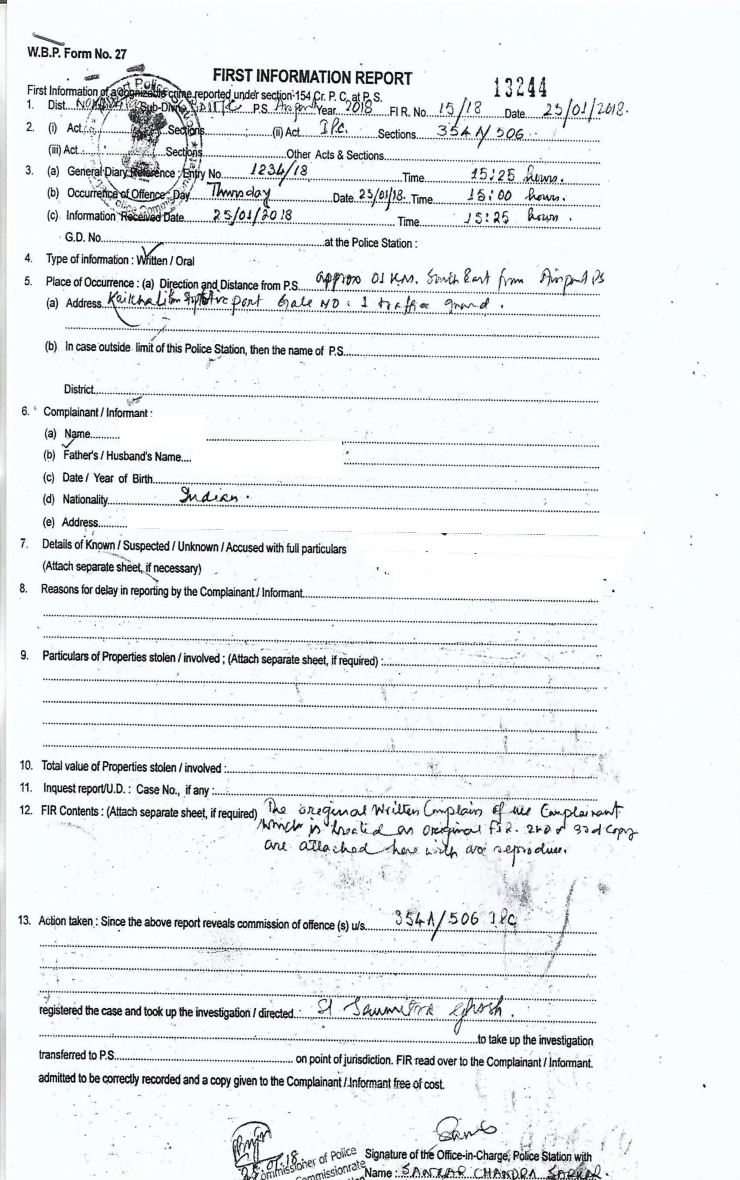 W.B.P. Form No. 27
FIRST INFORMATION REPORT
13244
First Information of a cognizable crime reported under section 154 Cr. P. C. at P. S.
1. Dist. Sub-Divn. P.S. Airport Year 2018 F I R. No. 15/18 Date 25/01/2018.
2. (i) Act Sections (ii) Act IPC. Sections 354A/506
(iii) Act Sections Other Acts & Sections
3. (a) General Diary Reference : Entry No 1234/18 Time 15:25 hours.
(b) Occurrence of Offence : Day Thursday Date 25/01/18. Time 15:00 hours.
(c) Information Received Date 25/01/2018 Time 15:25 hours.
G.D. No. at the Police Station :
4. Type of information : Written / Oral
5. Place of Occurrence : (a) Direction and Distance from P.S. Approx 01 Km. South East from Airport PS
(a) Address Kaikhali Airport Gate No: 1 traffic guard.
(b) In case outside limit of this Police Station, then the name of P.S.
District
6. Complainant / Informant :
(a) Name
(b) Father's / Husband's Name
(c) Date / Year of Birth
(d) Nationality Indian.
(e) Address
7. Details of Known / Suspected / Unknown / Accused with full particulars
(Attach separate sheet, if necessary)
8. Reasons for delay in reporting by the Complainant / Informant
9. Particulars of Properties stolen / involved ; (Attach separate sheet, if required) :
10. Total value of Properties stolen / involved :
11. Inquest report/U.D. : Case No., if any :
12. FIR Contents : (Attach separate sheet, if required) The oreginal Written Complain of the Complainant
which is treated as original FIR. 2nd & 3rd Copy
are attached here with are reproduce.
13. Action taken : Since the above report reveals commission of offence (s) u/s. 354A/506 IPC
registered the case and took up the investigation / directed SI Saumitra Ghosh.
to take up the investigation
transferred to P.S. on point of jurisdiction. FIR read over to the Complainant / Informant.
admitted to be correctly recorded and a copy given to the Complainant / Informant free of cost.
25.01.18
Commissioner of Police
Signature of the Office-in-Charge, Police Station with
Commissionrate
Name : SANKAR CHANDRA SARKAR.